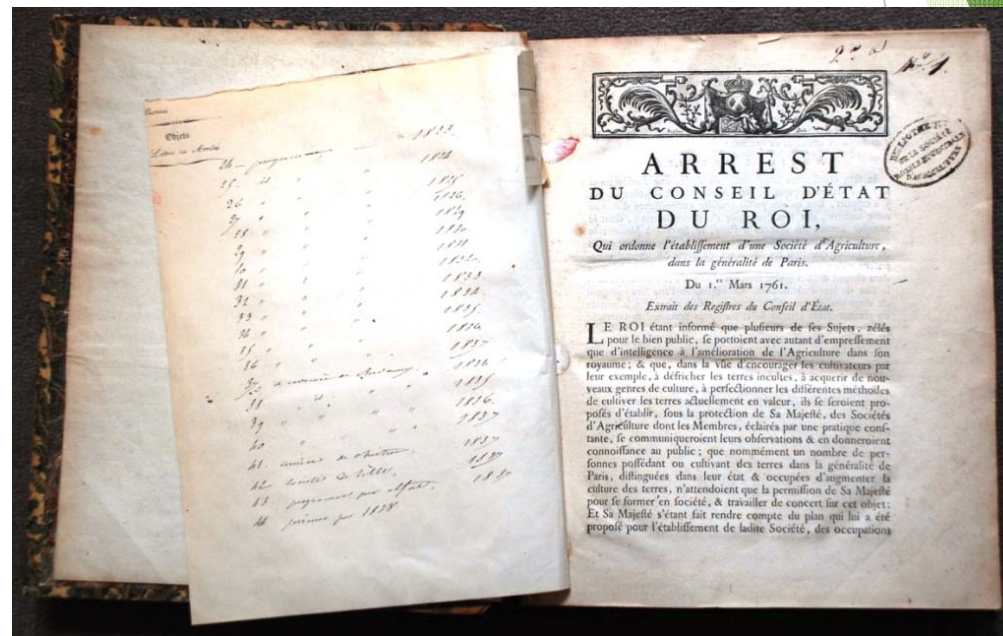 Objets
24 - programmes - 1823
25. id " " 1824
26 " " " 1825
27 " " " 1826.
28 " " " 1829
29 " " " 1830
30 " " " 1831
31 " " " 1832.
32 " " " 1833
33 " " " 1834.
34 " " " 1835.
35 " " " 1836.
36 " " " 1837
37 1834
38 " id. " " 1835
39 " " " " 1836.
40 " " " " 1837
41. 1837
42 de Lille. 1837
43 programme par 1837
44 primes pr 1838
2.e a
N.o 1.
BIBLIOTHEQUE
DE LA SOCIÉTÉ
ROYALE ET CENTRALE
D'AGRICULTURE
ARREST
DU CONSEIL D'ÉTAT
DU ROI,
Qui ordonne l'établiſſement d'une Société d'Agriculture,
dans la généralité de Paris.
Du 1.er Mars 1761.
Extrait des Regiſtres du Conſeil d'État.
LE ROI étant informé que pluſieurs de ſes Sujets, zélés
pour le bien public, ſe portoient avec autant d'empreſſement
que d'intelligence à l'amélioration de l'Agriculture dans ſon
royaume; & que, dans la vûe d'encourager les cultivateurs par
leur exemple, à défricher les terres incultes, à acquerir de nou-
veaux genres de culture, à perfectionner les différentes méthodes
de cultiver les terres actuellement en valeur, ils ſe ſeroient pro-
poſés d'établir, ſous la protection de Sa Majeſté, des Sociétés
d'Agriculture dont les Membres, éclairés par une pratique conſ-
tante, ſe communiqueroient leurs obſervations & en donneroient
connoiſſance au public; que nommément un nombre de per-
ſonnes poſſédant ou cultivant des terres dans la généralité de
Paris, diſtinguées dans leur état & occupées d'augmenter la
culture des terres, n'attendoient que la permiſſion de Sa Majeſté
pour ſe former en ſociété, & travailler de concert ſur cet objet:
Et Sa Majeſté s'étant fait rendre compte du plan qui lui a été
propoſé pour l'établiſſement de ladite Société, des occupations